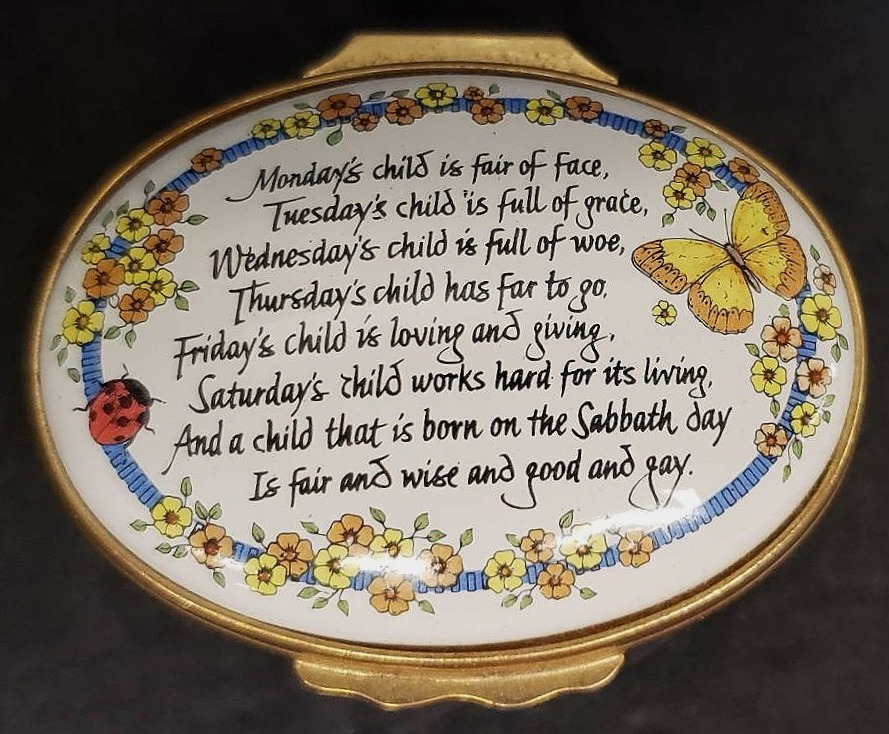 Monday's child is fair of face,
Tuesday's child is full of grace,
Wednesday's child is full of woe,
Thursday's child has far to go.
Friday's child is loving and giving,
Saturday's child works hard for its living,
And a child that is born on the Sabbath day
Is fair and wise and good and gay.